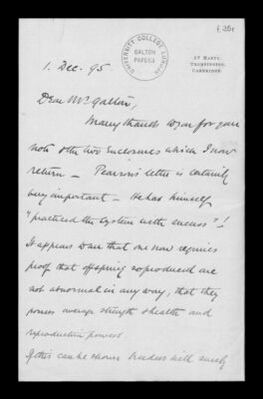 f. 25r
UNIVERSITY COLLEGE LONDON
GALTON PAPERS
ST MARYS,
TRUMPINGTON,
CAMBRIDGE.
1. Dec. 95
Dear Mr Galton,
Many thanks to you for your
note & the two enclosures which I now
return — Pearson's letter is certainly
very important — He has himself
"practised the system with success"!
It appears to me that one now requires
proof that offspring so produced are
not abnormal in any way, that they
possess average strength & health and
reproductive powers
If this can be shown breeders will surely